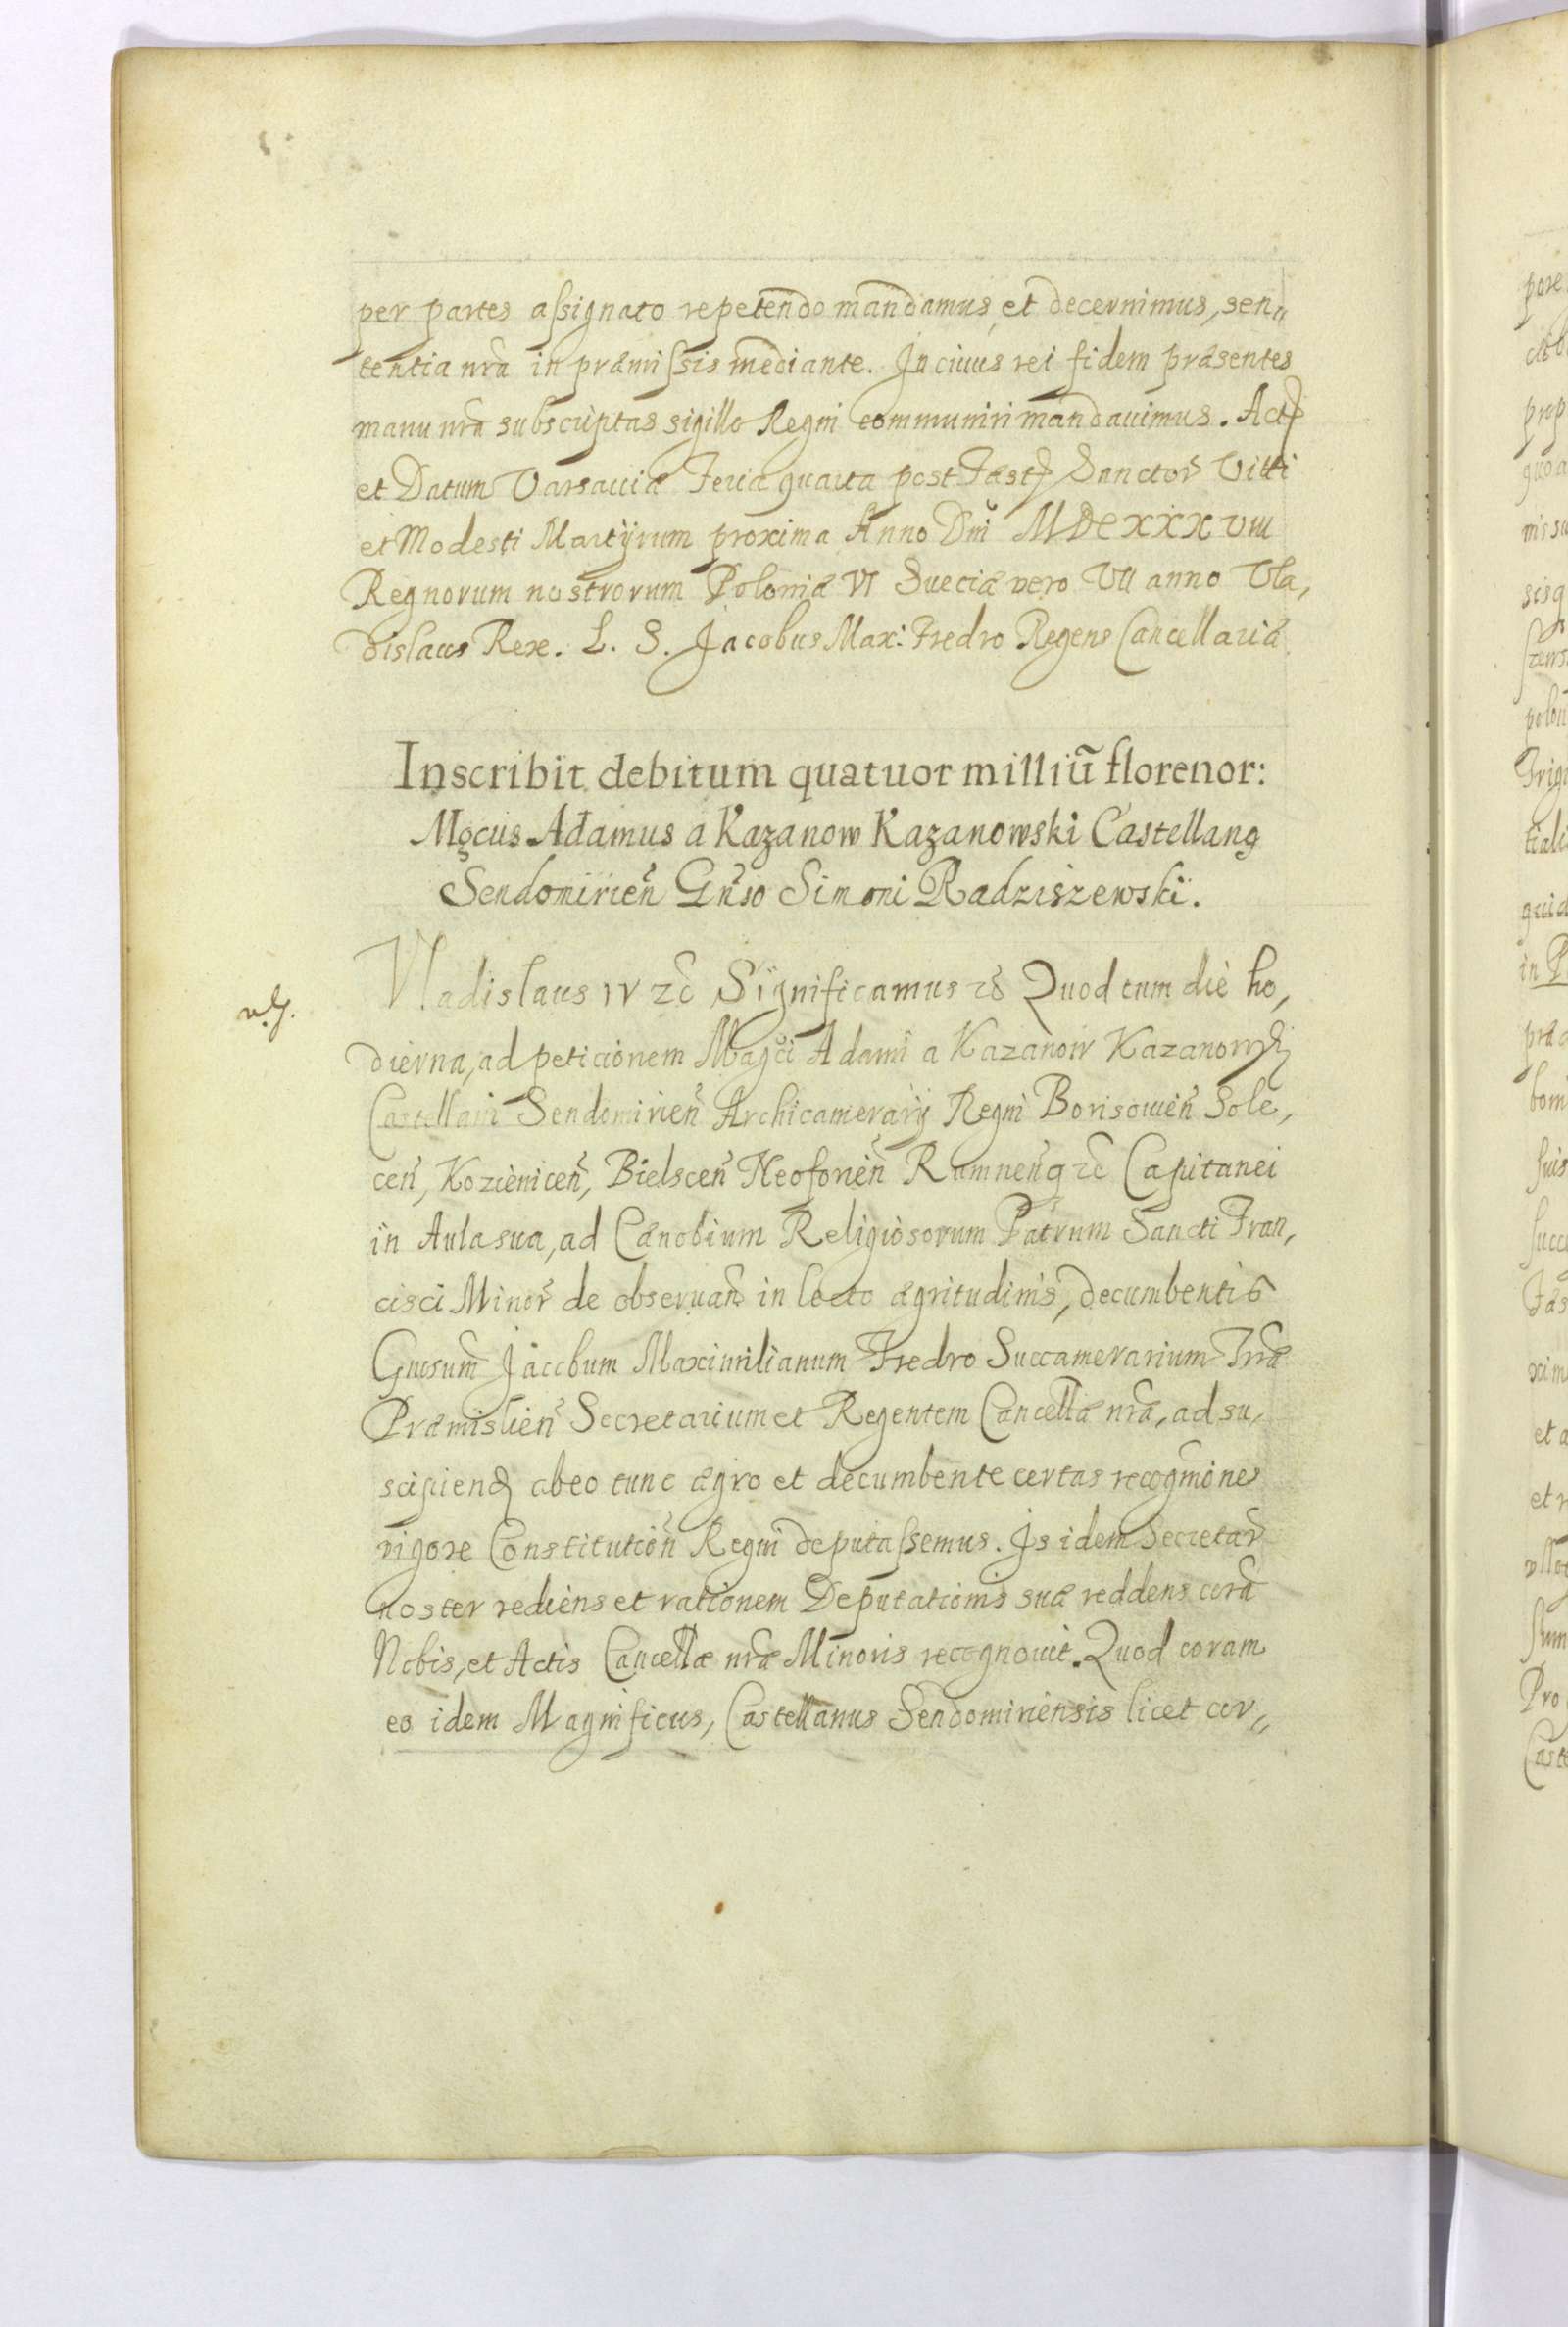 per partes assignato repetendo mandamus, et decernimus, sen„
tentia nr̃a in præmissis mediante. In cuius rei fidem præsentes
manu nr̃a subscriptas sigillo Regni communiri mandauimus. Actꝭ
et Datum Varsauiæ Feria quarta post Fæstꝭ Sanctor̃ Vitti
et Modesti Martÿrum proxima Anno Dn̄i MDCXXXVIII
Regnorum nostrorum Poloniæ VI Sueciæ vero VII anno Vla,
dislaus Rex. L. S. Jacobus Max: Fredro Regens Cancellariæ
Inscribit debitum quatuor milliū florenor:
Mgcus Adamus a Kazanow Kazanowski Castellanꝯ
Sendomirien̄ Gn̄so Simoni Radziszewski.
Vladislaus IV zc̄ Significamus zc̄ Quod cum die ho,
dierna, ad peticionem Magc̄i Adami a Kazanow Kazanowskj
Castellani Sendomirien̄ Archicamerarij Regni Borisouien̄ Sole,
cen̄, Kozienicen̄, Bielscen̄ Neoforien̄ Rumnen̄q zc̄ Capitanei
in Aula sua, ad Cænobium Religiosorum Patrum Sancti Fran,
cisci Minor̄ de obseruan̄ in lecto ægritudinis, decumbentis
Gnosum̄ Jacobum Maximilianum Fredro Succamerarium Trr̄æ
Præmislien̄ Secretarium et Regentem Cancellæ nr̄æ, ad su,
scipiend ab eo tunc ægro et decumbente certas recogniones
vigore Constitution̄ Regni deputassemus. Is idem Secretar̄
noster rediens et rationem Deputationis suæ reddens corā
Nobis, et Actis Cancellæ nr̄æ Minoris recognouit. Quod coram
eo idem Magnificus, Castellanus Sendomiriensis licet cor„